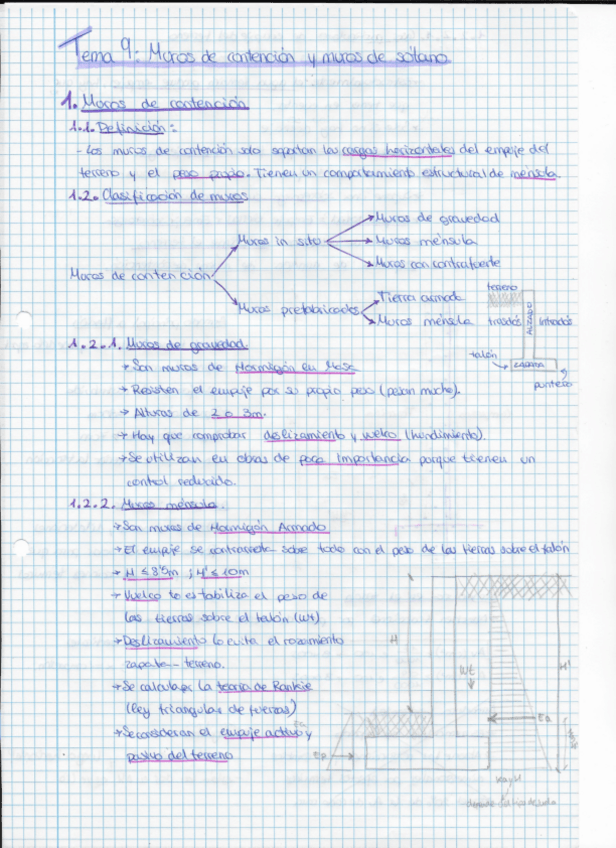 Tema 9: Muros de contención y muros de sótano
1. Muros de contención
1.1. Definición:
- Los muros de contención solo soportan las cargas horizontales del empuje del
terreno y el peso propio. Tienen un comportamiento estructural de ménsula.
1.2. Clasificación de muros
Muros de contención
Muros in situ
Muros de gravedad
Muros ménsula
Muros con contrafuerte
Muros prefabricados
Tierra armada
Muros ménsula
terreno
trasdós
ALZADO
intradós
talón
ZAPATA
puntera
1.2.1. Muros de gravedad.
→ Son muros de Hormigón en Masa
→ Resisten el empuje por su propio peso (pesan mucho).
→ Alturas de 2 o 3m.
→ Hay que comprobar deslizamiento y vuelco (hundimiento).
→ Se utilizan en obras de poca importancia porque tienen un
control reducido.
1.2.2. Muros ménsula.
→ Son muros de Hormigón Armado
→ El empuje se contrarresta sobre todo con el peso de las tierras sobre el talón
→ H ≤ 8'5m ; H' ≤ 10m
→ Vuelco lo estabiliza el peso de
las tierras sobre el talón (Wt)
→ Deslizamiento lo evita el rozamiento
zapata - terreno.
→ Se calcula por la teoría de Rankie
(ley triangular de fuerzas)
→ Se consideran el empuje activo y
pasivo del terreno
H
Wt
H'
Ea
Ep